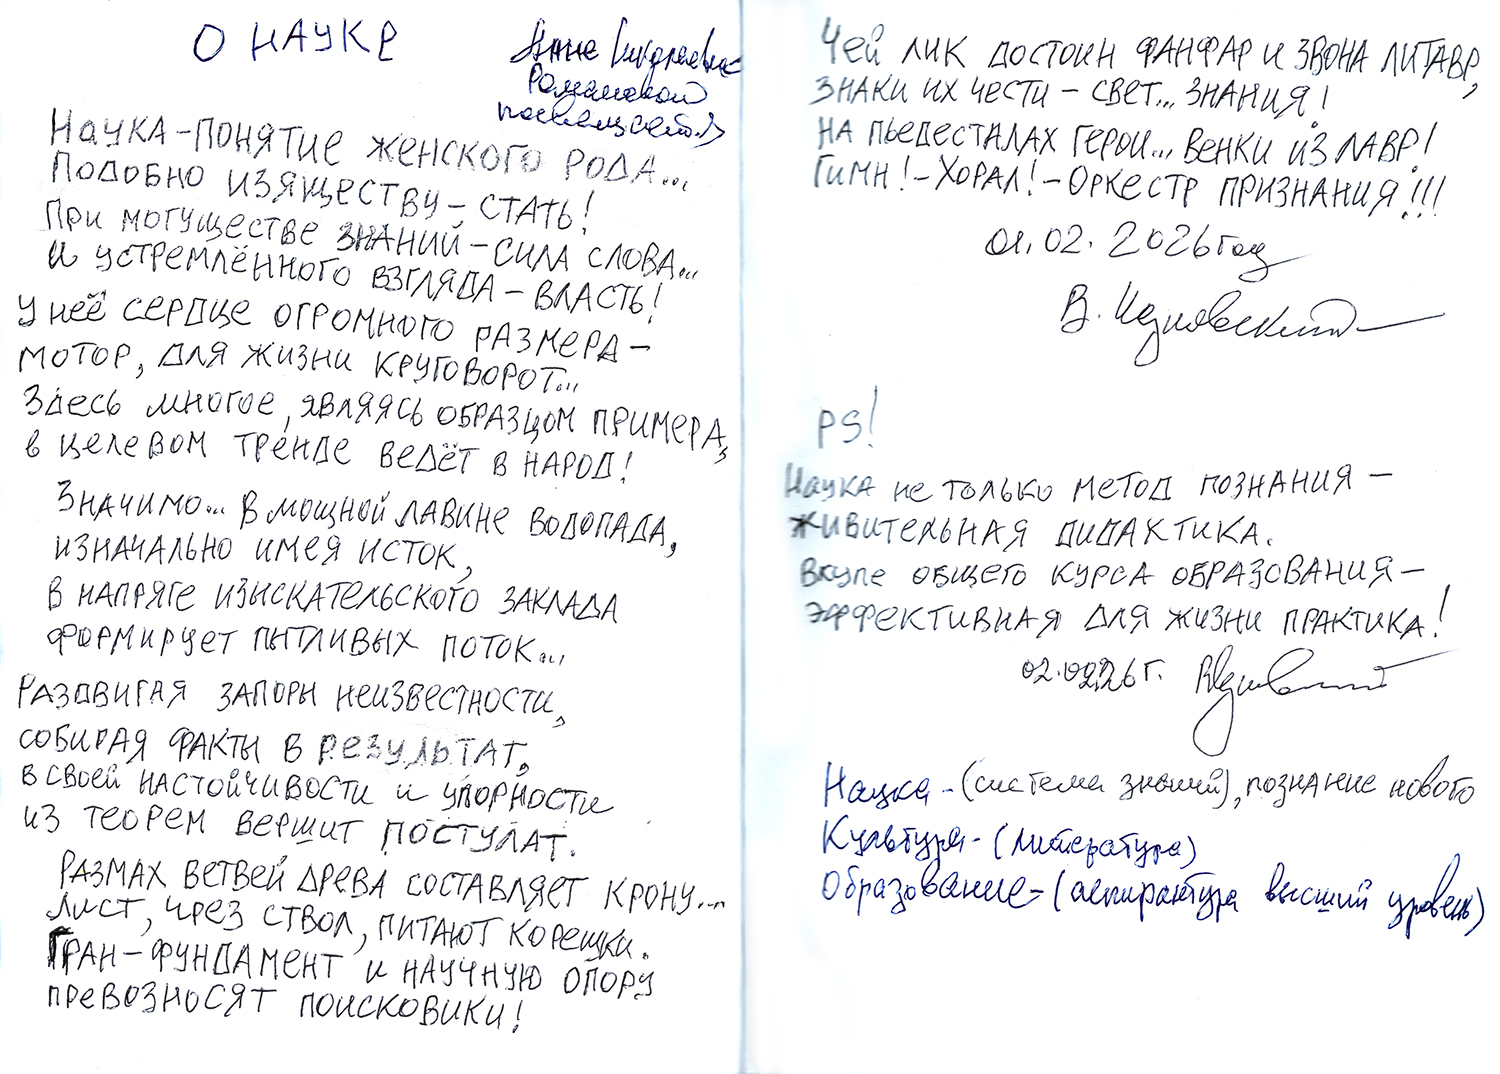 О НАУКЕ
Анне Николаевне
Романовой
посвящается
НАУКА – ПОНЯТИЕ ЖЕНСКОГО РОДА...
ПОДОБНО ИЗЯЩЕСТВУ – СТАТЬ!
ПРИ МОГУЩЕСТВЕ ЗНАНИЙ – СИЛА СЛОВА...
И УСТРЕМЛЁННОГО ВЗГЛЯДА – ВЛАСТЬ!
У НЕЁ СЕРДЦЕ ОГРОМНОГО РАЗМЕРА –
МОТОР, ДЛЯ ЖИЗНИ КРУГОВОРОТ...
ЗДЕСЬ МНОГОЕ, ЯВЛЯЯСЬ ОБРАЗЦОМ ПРИМЕРА,
В ЦЕЛЕВОМ ТРЕНДЕ ВЕДЁТ В НАРОД!
ЗНАЧИМО... В МОЩНОЙ ЛАВИНЕ ВОДОПАДА,
ИЗНАЧАЛЬНО ИМЕЯ ИСТОК,
В НАПРЯГЕ ИЗЫСКАТЕЛЬСКОГО ЗАКЛАДА
ФОРМИРУЕТ ПЫТЛИВЫХ ПОТОК...
РАЗДВИГАЯ ЗАПОРЫ НЕИЗВЕСТНОСТИ,
СОБИРАЯ ФАКТЫ В РЕЗУЛЬТАТ,
В СВОЕЙ НАСТОЙЧИВОСТИ И УПОРНОСТИ
ИЗ ТЕОРЕМ ВЕРШИТ ПОСТУЛАТ.
РАЗМАХ ВЕТВЕЙ ДРЕВА СОСТАВЛЯЕТ КРОНУ...
ЛИСТ, ЧРЕЗ СТВОЛ, ПИТАЮТ КОРЕШКИ.
ГРАН – ФУНДАМЕНТ И НАУЧНУЮ ОПОРУ
ПРЕВОЗНОСЯТ ПОИСКОВИКИ!
ЧЕЙ ЛИК ДОСТОИН ФАНФАР И ЗВОНА ЛИТАВР,
ЗНАКИ ИХ ЧЕСТИ – СВЕТ... ЗНАНИЯ!
НА ПЬЕДЕСТАЛАХ ГЕРОИ... ВЕНКИ ИЗ ЛАВР!
ГИМН! – ХОРАЛ! – ОРКЕСТР ПРИЗНАНИЯ!!!
01.02.2026 год
PS!
НАУКА НЕ ТОЛЬКО МЕТОД ПОЗНАНИЯ –
ЖИВИТЕЛЬНАЯ ДИДАКТИКА.
ВКУПЕ ОБЩЕГО КУРСА ОБРАЗОВАНИЯ –
ЭФФЕКТИВНАЯ ДЛЯ ЖИЗНИ ПРАКТИКА!
Наука – (система знаний), познание нового
Культура – (литература)
Образование – (аспирантура высший уровень)